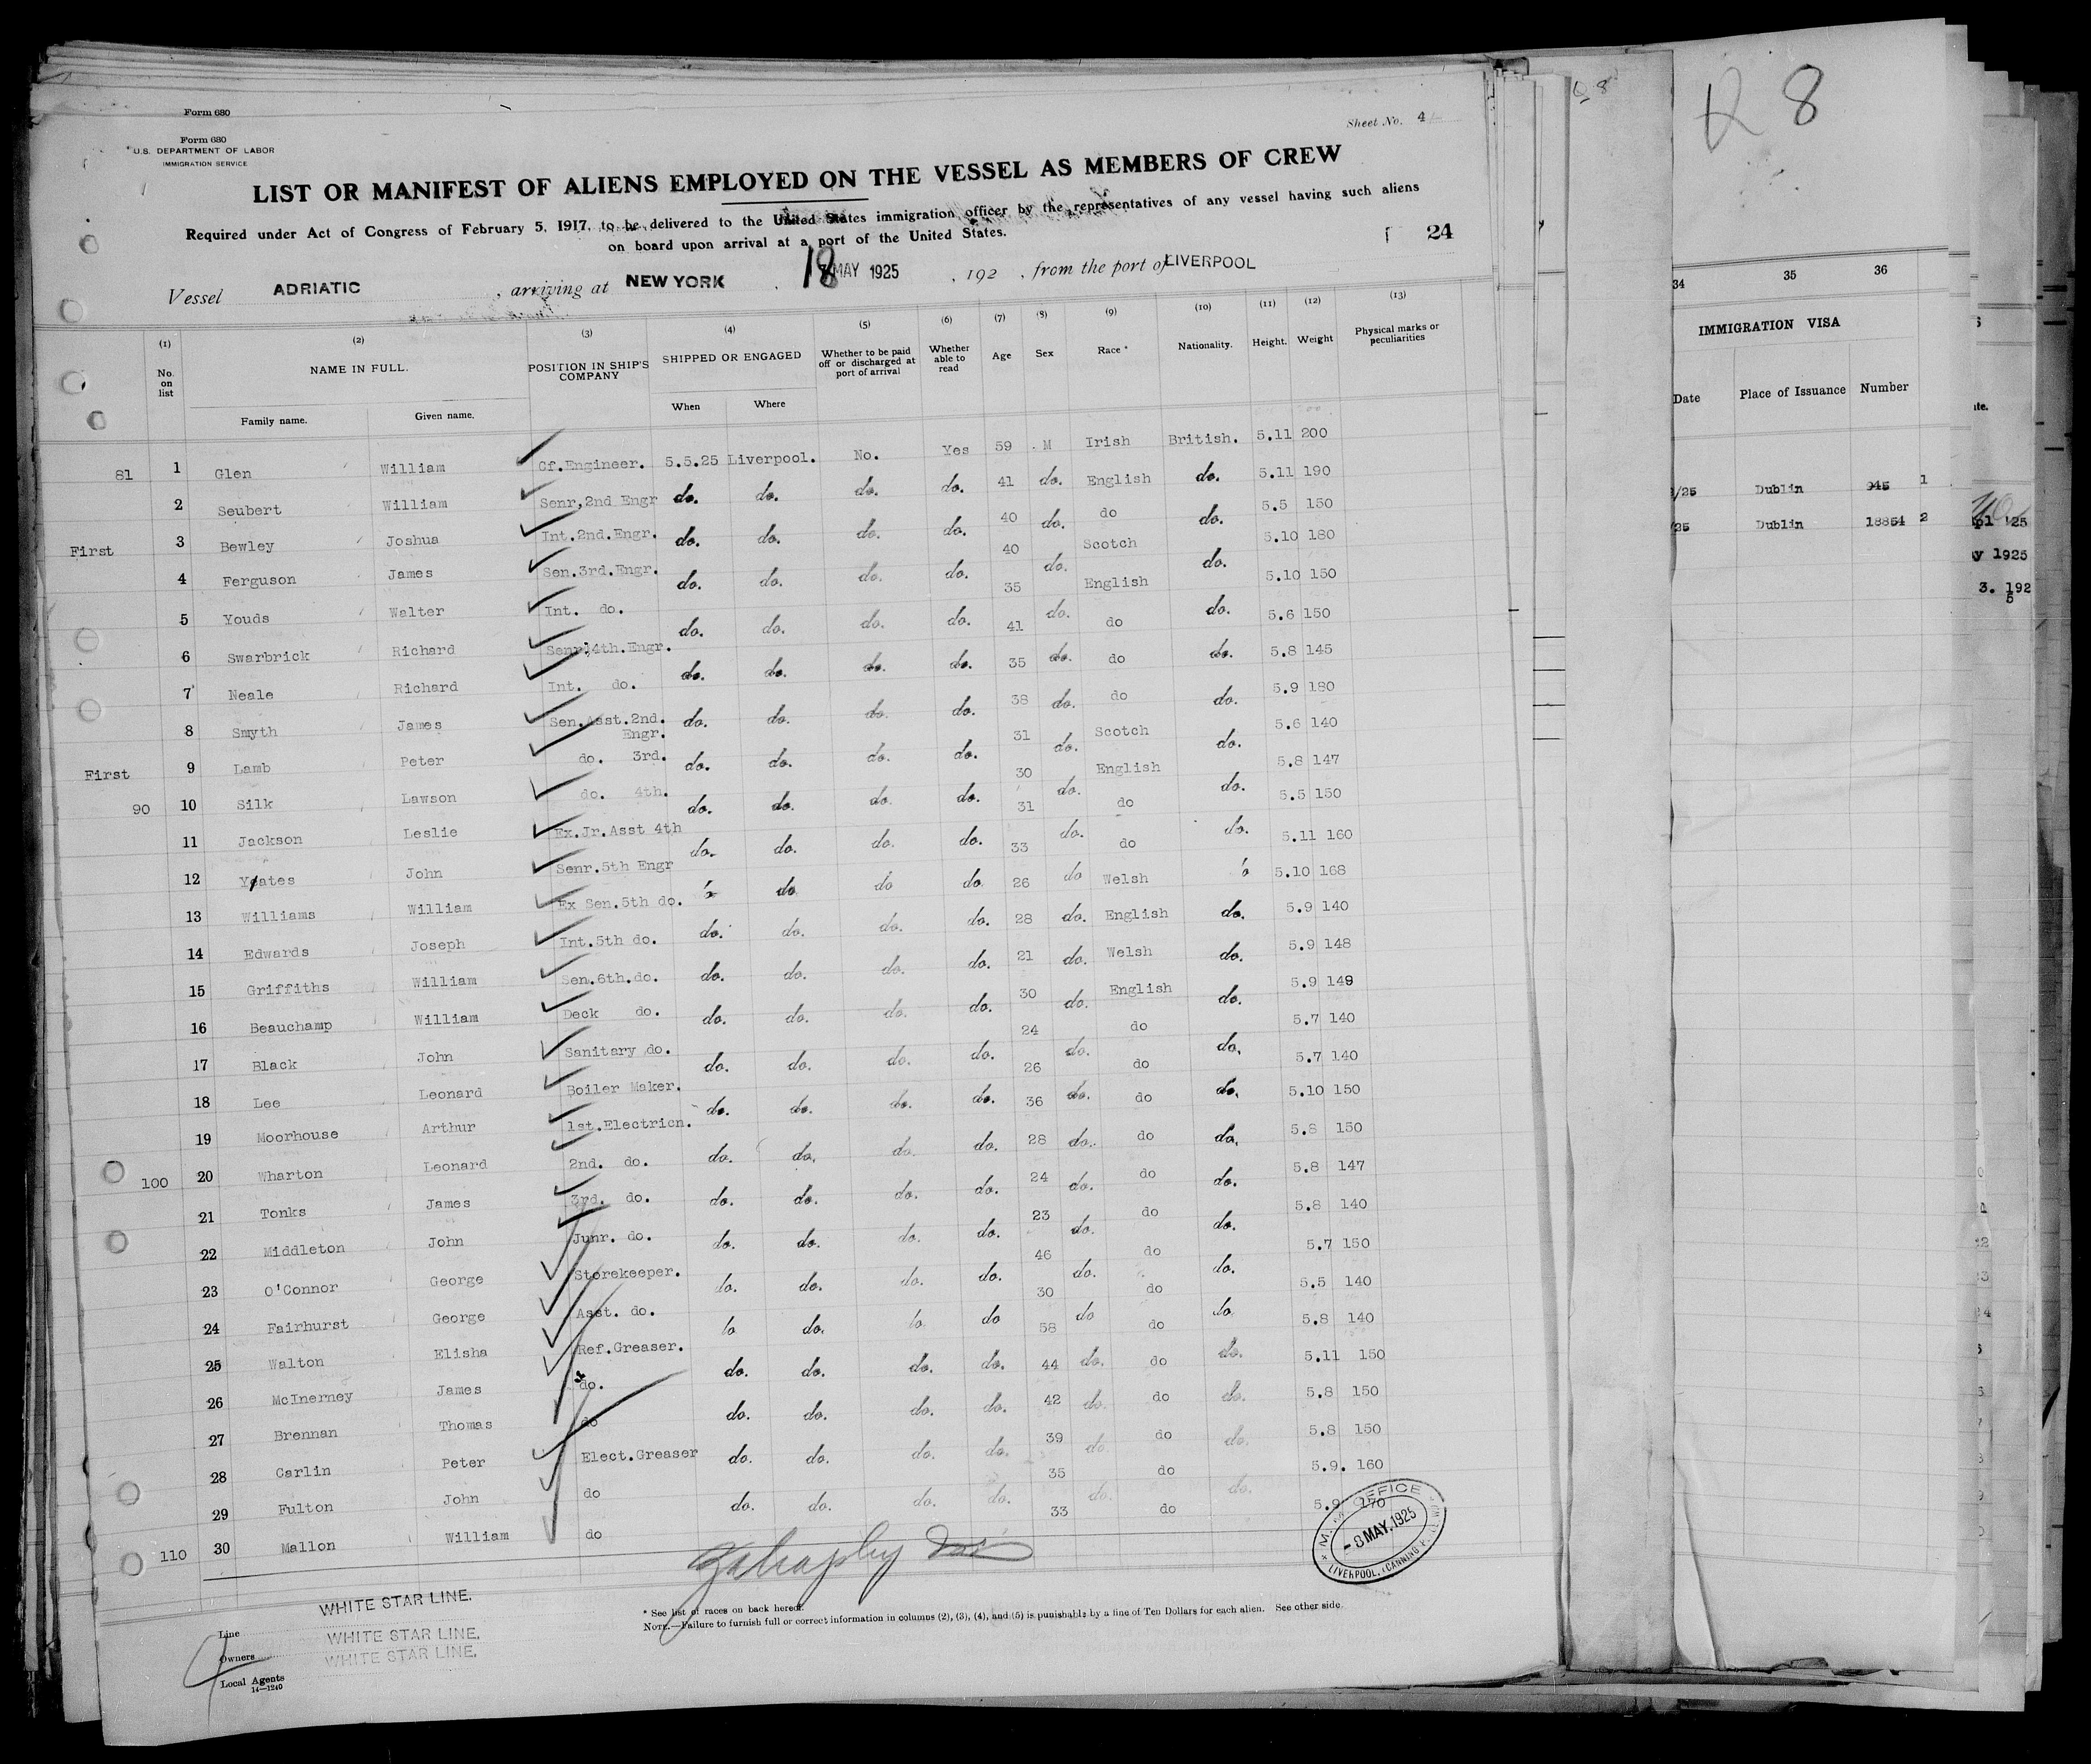 Form 680
Form 680
U.S. DEPARTMENT OF LABOR
IMMIGRATION SERVICE
Sheet No. 4
LIST OR MANIFEST OF ALIENS EMPLOYED ON THE VESSEL AS MEMBERS OF CREW
Required under Act of Congress of February 5, 1917, to be delivered to the United States immigration officer by the representatives of any vessel having such aliens
on board upon arrival at a port of the United States.
24
Vessel ADRIATIC , arriving at NEW YORK , 18 MAY 1925 , 192 , from the port of LIVERPOOL
(1) (2) (3) (4) (5) (6) (7) (8) (9) (10) (11) (12) (13)
No. on list NAME IN FULL. POSITION IN SHIP'S COMPANY SHIPPED OR ENGAGED Whether to be paid off or discharged at port of arrival Whether able to read Age Sex Race * Nationality. Height. Weight Physical marks or peculiarities
Family name. Given name. When Where
81 1 Glen William Cf.Engineer. 5.5.25 Liverpool. No. Yes 59 M Irish British. 5.11 200
2 Seubert William Senr,2nd Engr do. do. do. do. 41 do. English do. 5.11 190
First 3 Bewley Joshua Int.2nd.Engr. do. do. do. do. 40 do. do do. 5.5 150
4 Ferguson James Sen.3rd.Engr. do. do. do. do. 40 do. Scotch do. 5.10 180
5 Youds Walter Int. do. do. do. do. do. 35 do. English do. 5.10 150
6 Swarbrick Richard Senr.4th.Engr. do. do. do. do. 41 do. do do. 5.6 150
7 Neale Richard Int. do. do. do. do. do. 35 do. do do. 5.8 145
8 Smyth James Sen.Asst.2nd. Engr. do. do. do. do. 38 do. do do. 5.9 180
First 9 Lamb Peter do. 3rd. do. do. do. do. 31 do. Scotch do. 5.6 140
90 10 Silk Lawson do. 4th. do. do. do. do. 30 do. English do. 5.8 147
11 Jackson Leslie Ex.Jr.Asst 4th do. do. do. do. 31 do. do do. 5.5 150
12 Yeates John Senr.5th Engr do do do 33 do do 5.11 160
13 Williams William Ex Sen.5th do. do. do. do. do. 26 do. Welsh do. 5.10 168
14 Edwards Joseph Int.5th do. do. do. do. do. 28 do. English do. 5.9 140
15 Griffiths William Sen.6th.do. do. do. do. do. 21 do. Welsh do. 5.9 148
16 Beauchamp William Deck do. do. do. do. do. 30 do. English do. 5.9 149
17 Black John Sanitary do. do. do. do. do. 24 do. do do. 5.7 140
18 Lee Leonard Boiler Maker. do. do. do. do. 26 do. do do. 5.7 140
19 Moorhouse Arthur 1st.Electricn. do. do. do. do. 36 do. do do. 5.10 150
100 20 Wharton Leonard 2nd. do. do. do. do. do. 28 do. do do. 5.8 150
21 Tonks James 3rd. do. do. do. do. do. 24 do. do do. 5.8 147
22 Middleton John Junr. do. do. do. do. do. 23 do. do do. 5.8 140
23 O'Connor George Storekeeper. do. do. do. do. 46 do. do do. 5.7 150
24 Fairhurst George Asst. do. do. do do 30 do do do 5.5 140
25 Walton Elisha Ref.Greaser. do. do. do. do. 58 do. do do. 5.8 140
26 McInerney James do. do. do. do. do. 44 do. do do. 5.11 150
27 Brennan Thomas do do. do. do. do. 42 do. do do. 5.8 150
28 Carlin Peter Elect.Greaser do. do. do. do. 39 do. do do. 5.8 150
29 Fulton John do 35 do 5.9. 160
110 30 Mallon William do 33 do 5.9 170
OFFICE
-8 MAY.1925
LIVERPOOL, (CANNING
Line WHITE STAR LINE.
Owners WHITE STAR LINE.
Local Agents WHITE STAR LINE.
14-1240
* See list of races on back hereof.
NOTE.—Failure to furnish full or correct information in columns (2), (3), (4), and (5) is punishable by a fine of Ten Dollars for each alien. See other side.
Q 8
34 35 36
IMMIGRATION VISA
Date Place of Issuance Number
/25 Dublin 945 1
/25 Dublin 18854 2
'25
1925
3. 192
5